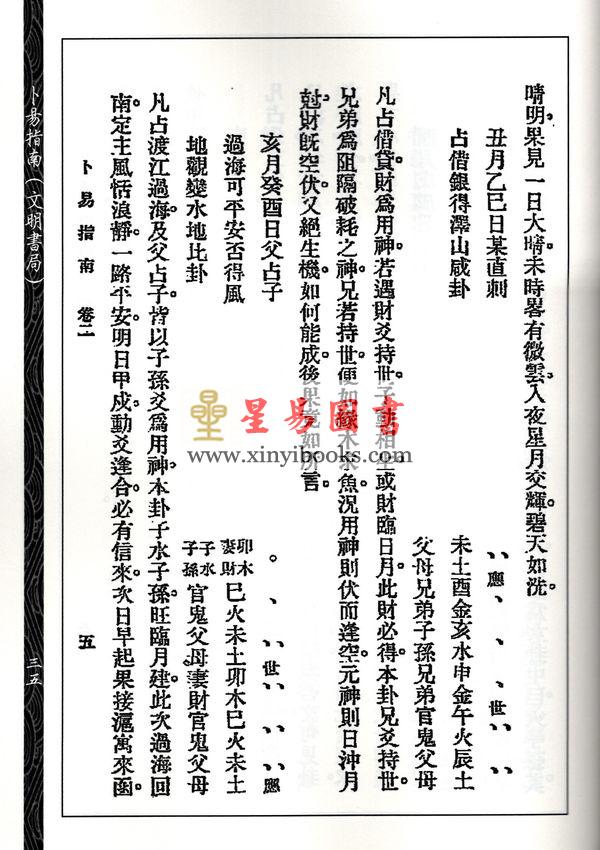 晴明。果見一日大晴。未時畧有微雲。入夜星月交輝。碧天如洗。
丑月乙巳日某直刺
占借銀得澤山咸卦
應 世
未土酉金亥水申金午火辰土
父母兄弟子孫兄弟官鬼父母
凡占借貸。財爲用神。若遇財爻持世。子動相生。或財臨日月。此財必得。本卦兄爻持世。
兄弟爲阻隔破耗之神。兄若持世。便如緣木求魚。況用神則伏而逢空。元神則日沖月
尅。財旣空伏。又絕生機。如何能成。後果竟如所言。
亥月癸酉日父占子
過海可平安否得風
地觀變水地比卦
世 應
卯木 巳火未土卯木巳火未土
妻財
子水 官鬼父母妻財官鬼父母
子孫
凡占渡江過海。及父占子。皆以子孫爻爲用神。本卦子水子孫。旺臨月建。此次過海回
南。定主風恬浪靜。一路平安。明日甲戌。動爻逢合。必有信來。次日早起。果接滬寓來函。
卜易指南 卷二 五
卜易指南(文明書局)
三五
星易圖書
www.xinyibooks.com